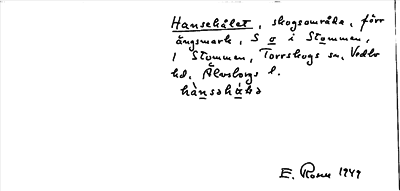 Hansehålet, skogsområde, förr
ängsmark, S o i Stommen,
i Stommen, Torrskogs sn, Vedbo
hd, Älvsborgs l.
E. Rosén 1949